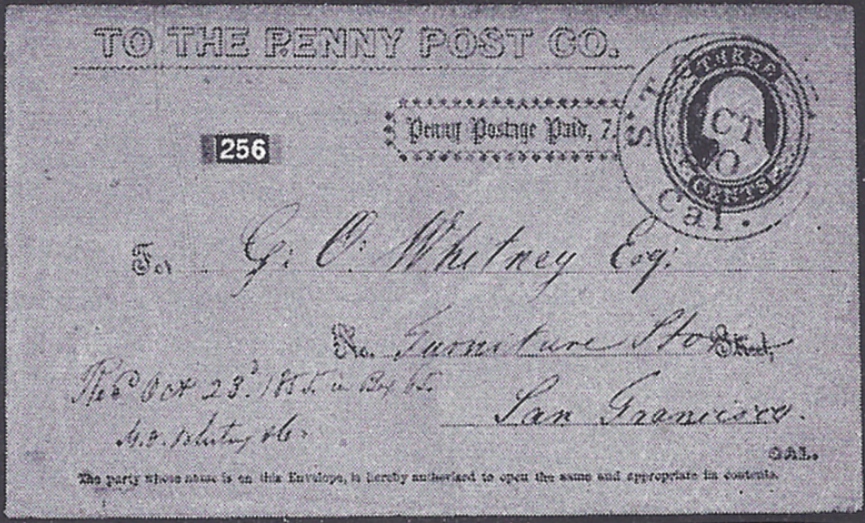 TO THE PENNY POST CO.
Penny Postage Paid, 7.
THREE
CENTS
ST
OCT
Cal.
256
For G. O. Whitney Esq.
No. Furniture Store Street,
San Francisco.
CAL.
Rec'd Oct 23d 1855 in Box 65
The party whose name is on this Envelope, is hereby authorised to open the same and appropriate its contents.